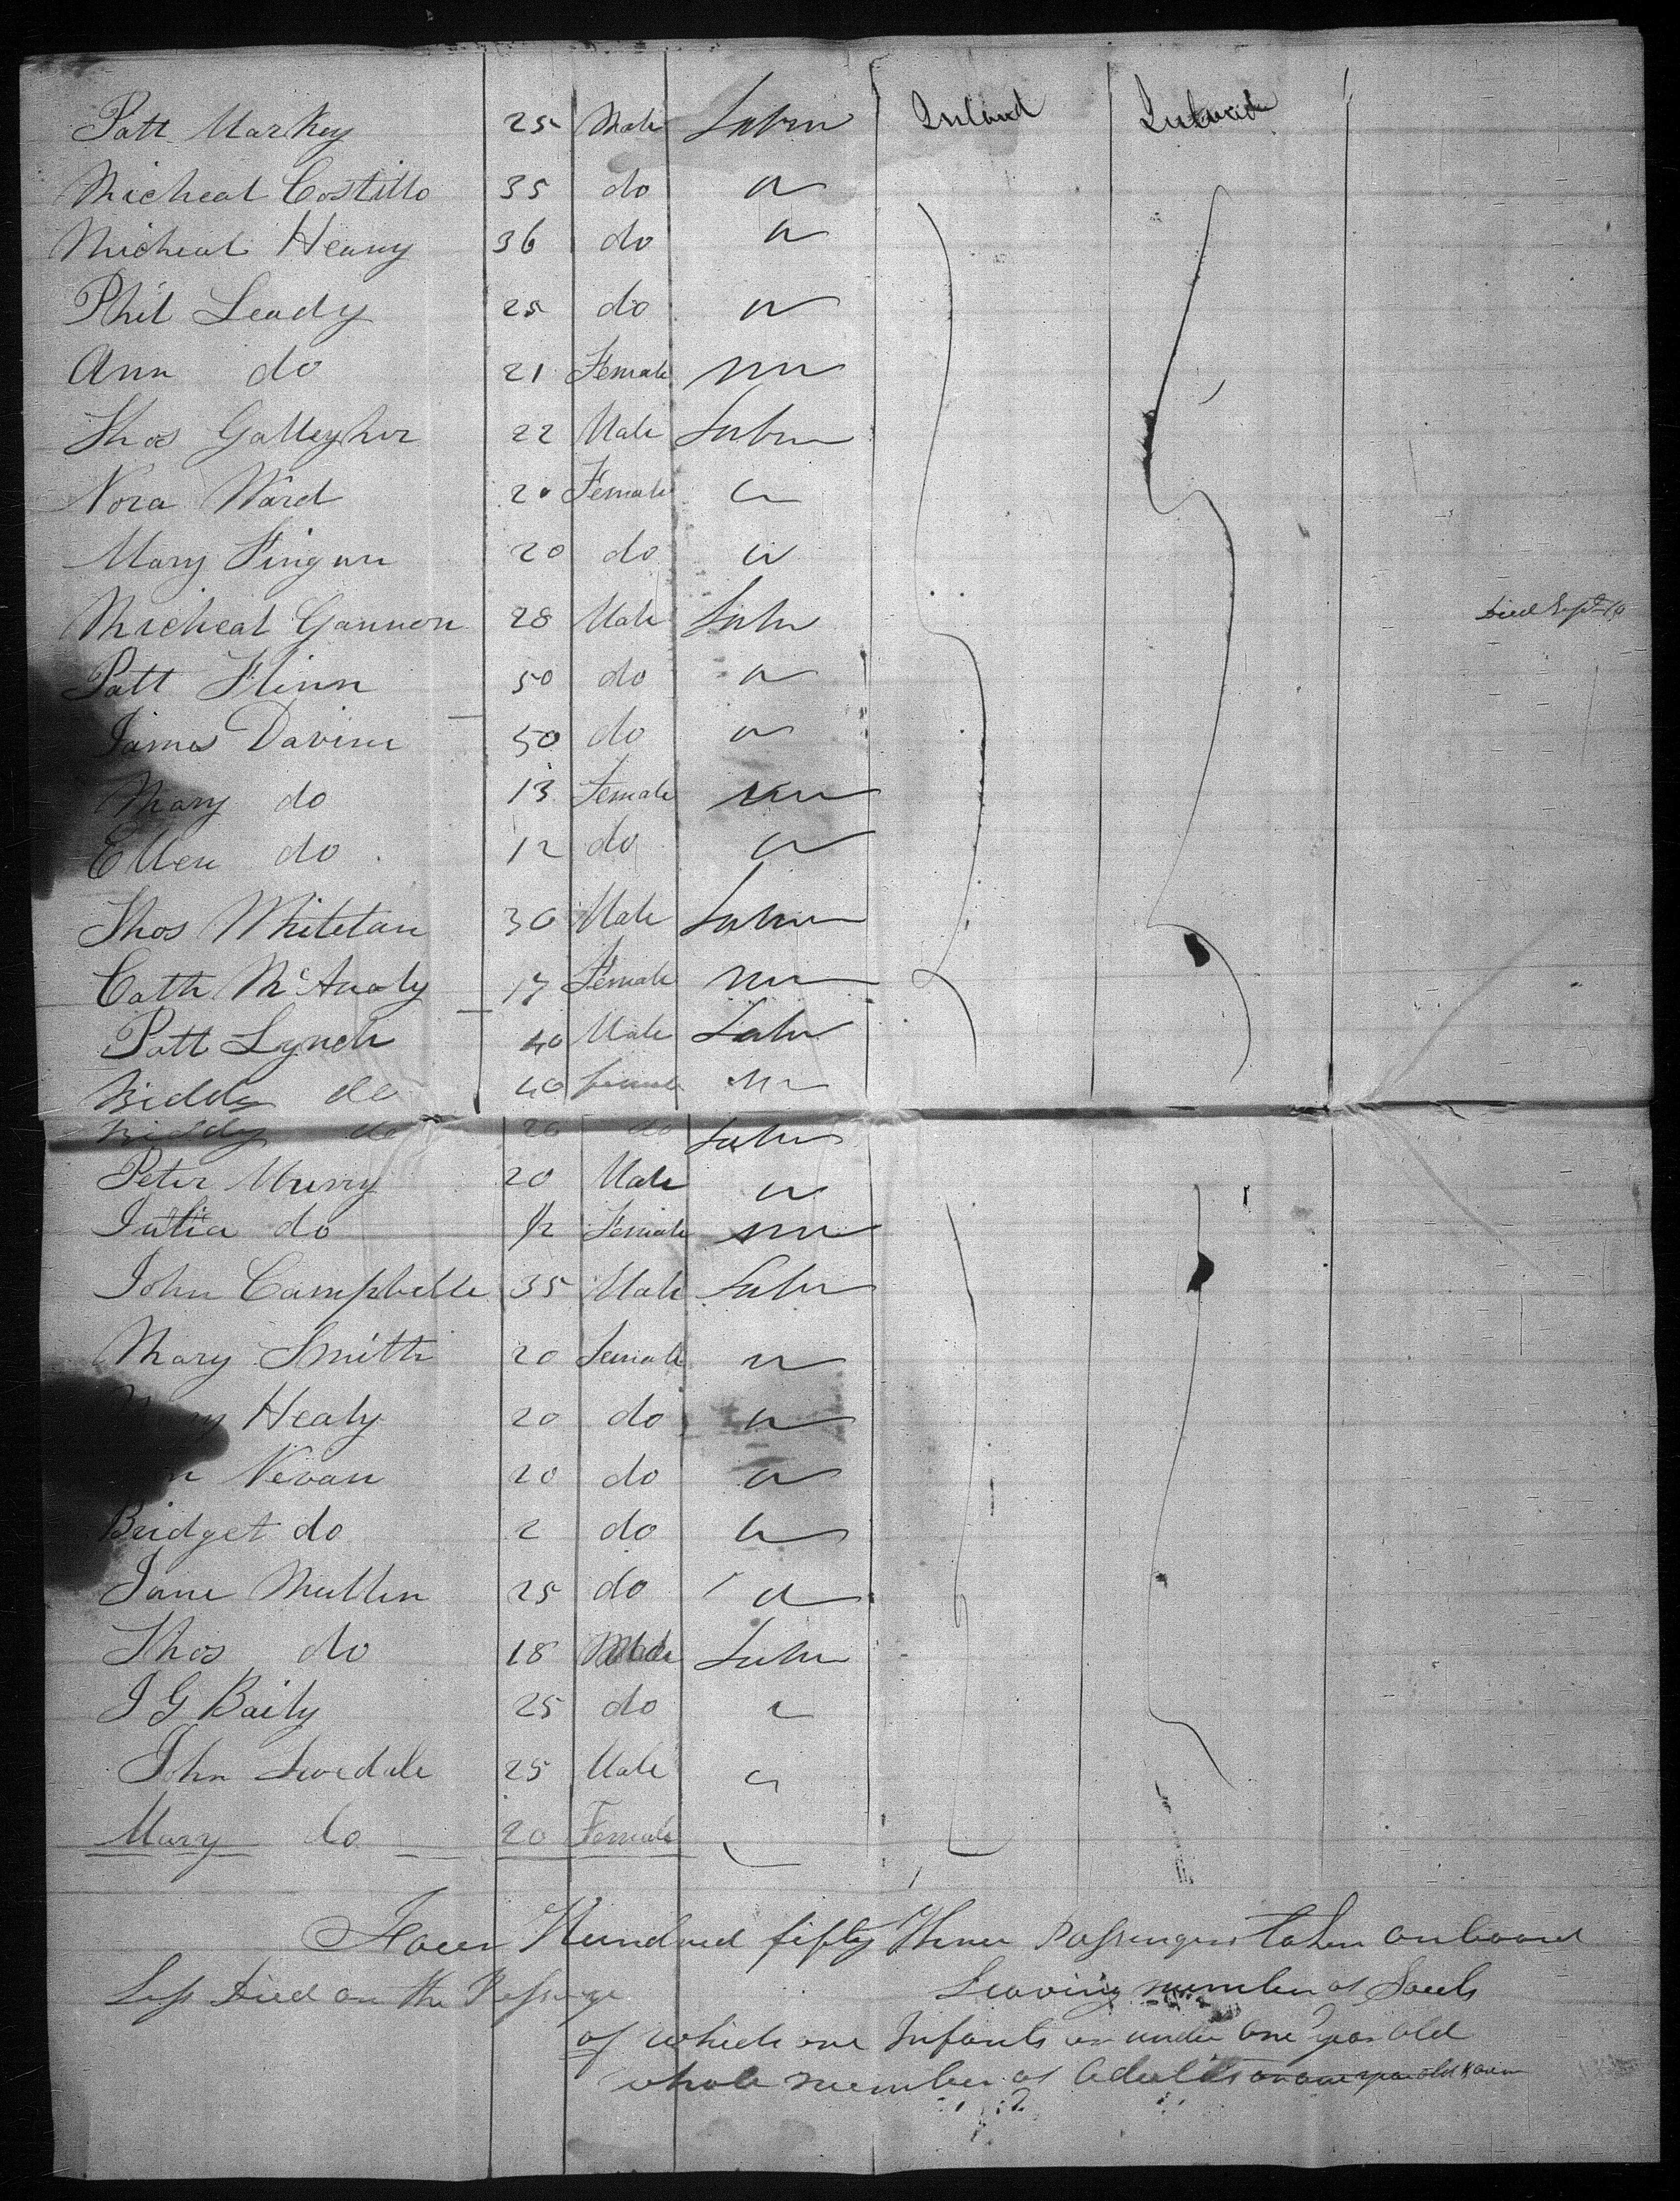 Patt Markey 25 Male Labr Ireland
Micheal Costillo 35 do "
Micheal Heany 36 do "
Phil Leady 25 do "
Ann do 21 Female
Thos Gallegher 22 Male Labr
Nora Ward 20 Female "
Mary 20 do "
Micheal Gannon 28 Male Labr Died Sept
Patt Flinn 50 do "
James Davine 50 do "
Mary do 13 Female
Ellen do 12 do "
Thos 30 Male Labr
Cath 17 Female
Patt Lynch 40 Male Labr
Biddy do 40 female
Biddy do 20 do Labr
Peter Murry 20 Male "
Julia do Female
John Campbelle 35 Male Labr
Mary Smith 20 Female "
Healy 20 do "
Nevan 20 do "
Bridget do 2 do "
Jane Mullen 25 do "
Thos do 18 Male Labr
J G Baily 25 do "
John 25 Male "
Mary do 20 Female
Four Hundred fifty Three Passengers taken onboard
Less Died on the Passage Leaving number of Souls
of which are Infants or under One year old
whole number of Adults